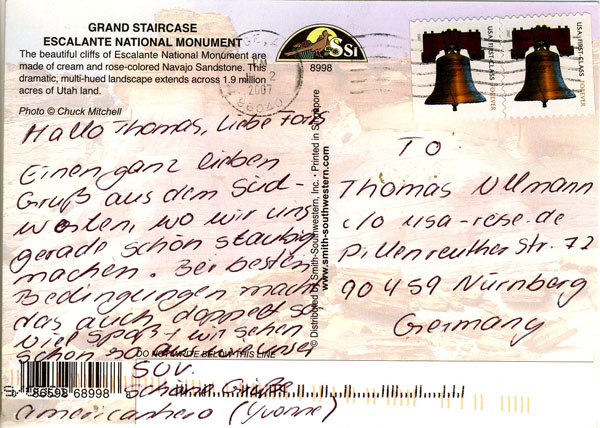 GRAND STAIRCASE
ESCALANTE NATIONAL MONUMENT
The beautiful cliffs of Escalante National Monument are
made of cream and rose-colored Navajo Sandstone. This
dramatic, multi-hued landscape extends across 1.9 million
acres of Utah land.
Photo © Chuck Mitchell
SSI
8998
2
2007
USA FIRST-CLASS FOREVER
USA FIRST-CLASS FOREVER
Hallo Thomas, liebe Fans
Einen ganz lieben
Gruß aus dem Süd-
westen, wo wir uns
gerade schön staubig
machen. Bei besten
Bedingungen macht
das auch doppelt so
viel Spaß + wir sehen
schon so aus
SUV.
Schöne Grüße
americanhero (Yvonne)
© Distributed by Smith-Southwestern, Inc. • Printed in Singapore
www.smith-southwestern.com
TO
Thomas Ullmann
c/o usa-rese.de
Pillenreuther Str. 72
90459 Nürnberg
Germany
DO NOT WRITE BELOW THIS LINE
86598 68998